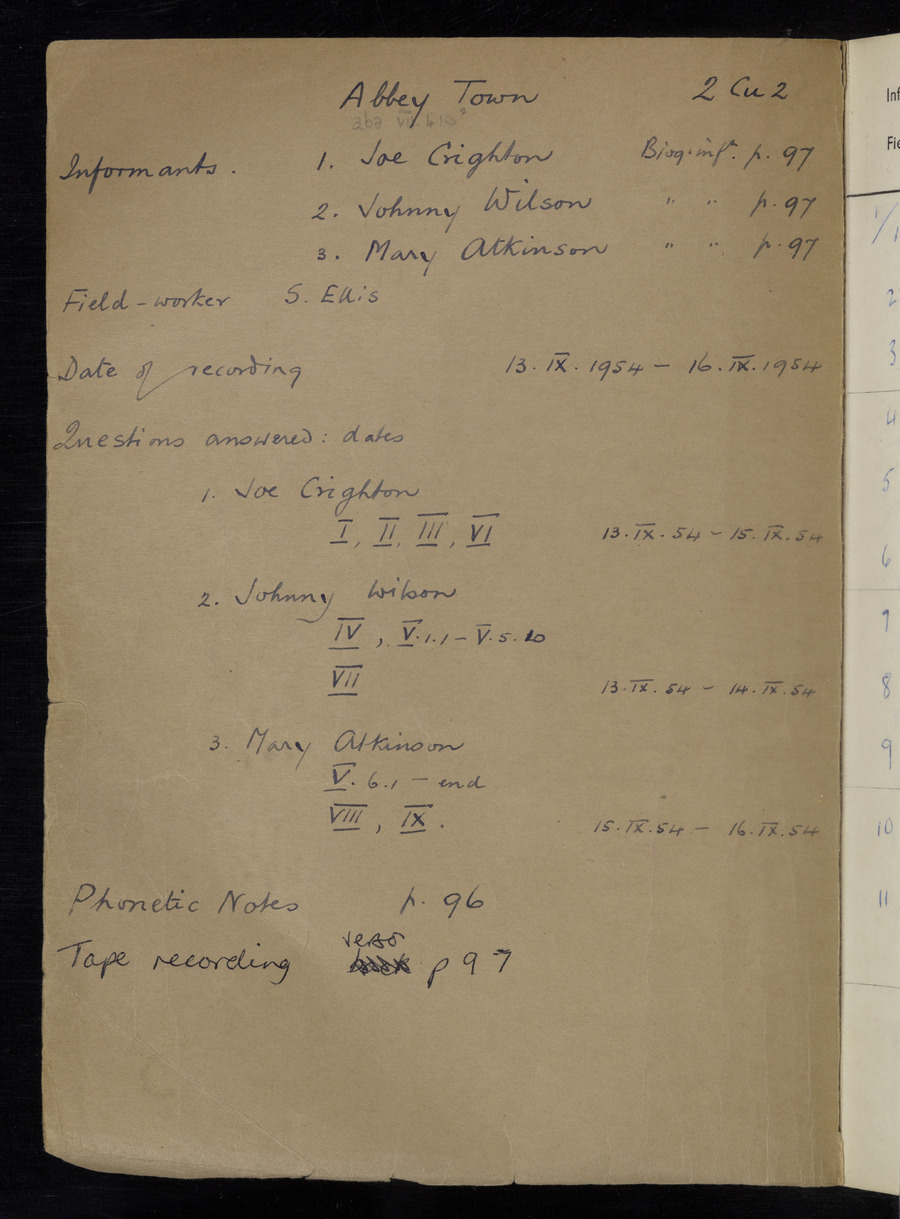 Abbey Town 2 Cu 2
Informants. 1. Joe Crighton Biog. infn. p. 97
2. Johnny Wilson " " p. 97
3. Mary Atkinson " " p. 97
Field-worker S. Ellis
Date of recording 13. IX. 1954 – 16. IX. 1954
Questions answered: dates
1. Joe Crighton
I, II, III, VI 13. IX. 54 – 15. IX. 54
2. Johnny Wilson
IV, V.1.1 – V.5.10
VII 13. IX. 54 – 14. IX. 54
3. Mary Atkinson
V. 6.1 – end
VIII, IX. 15. IX. 54 – 16. IX. 54
Phonetic Notes p. 96
Tape recording verso p 97
Inf
Fie
2
3
4
5
6
7
8
9
10
11